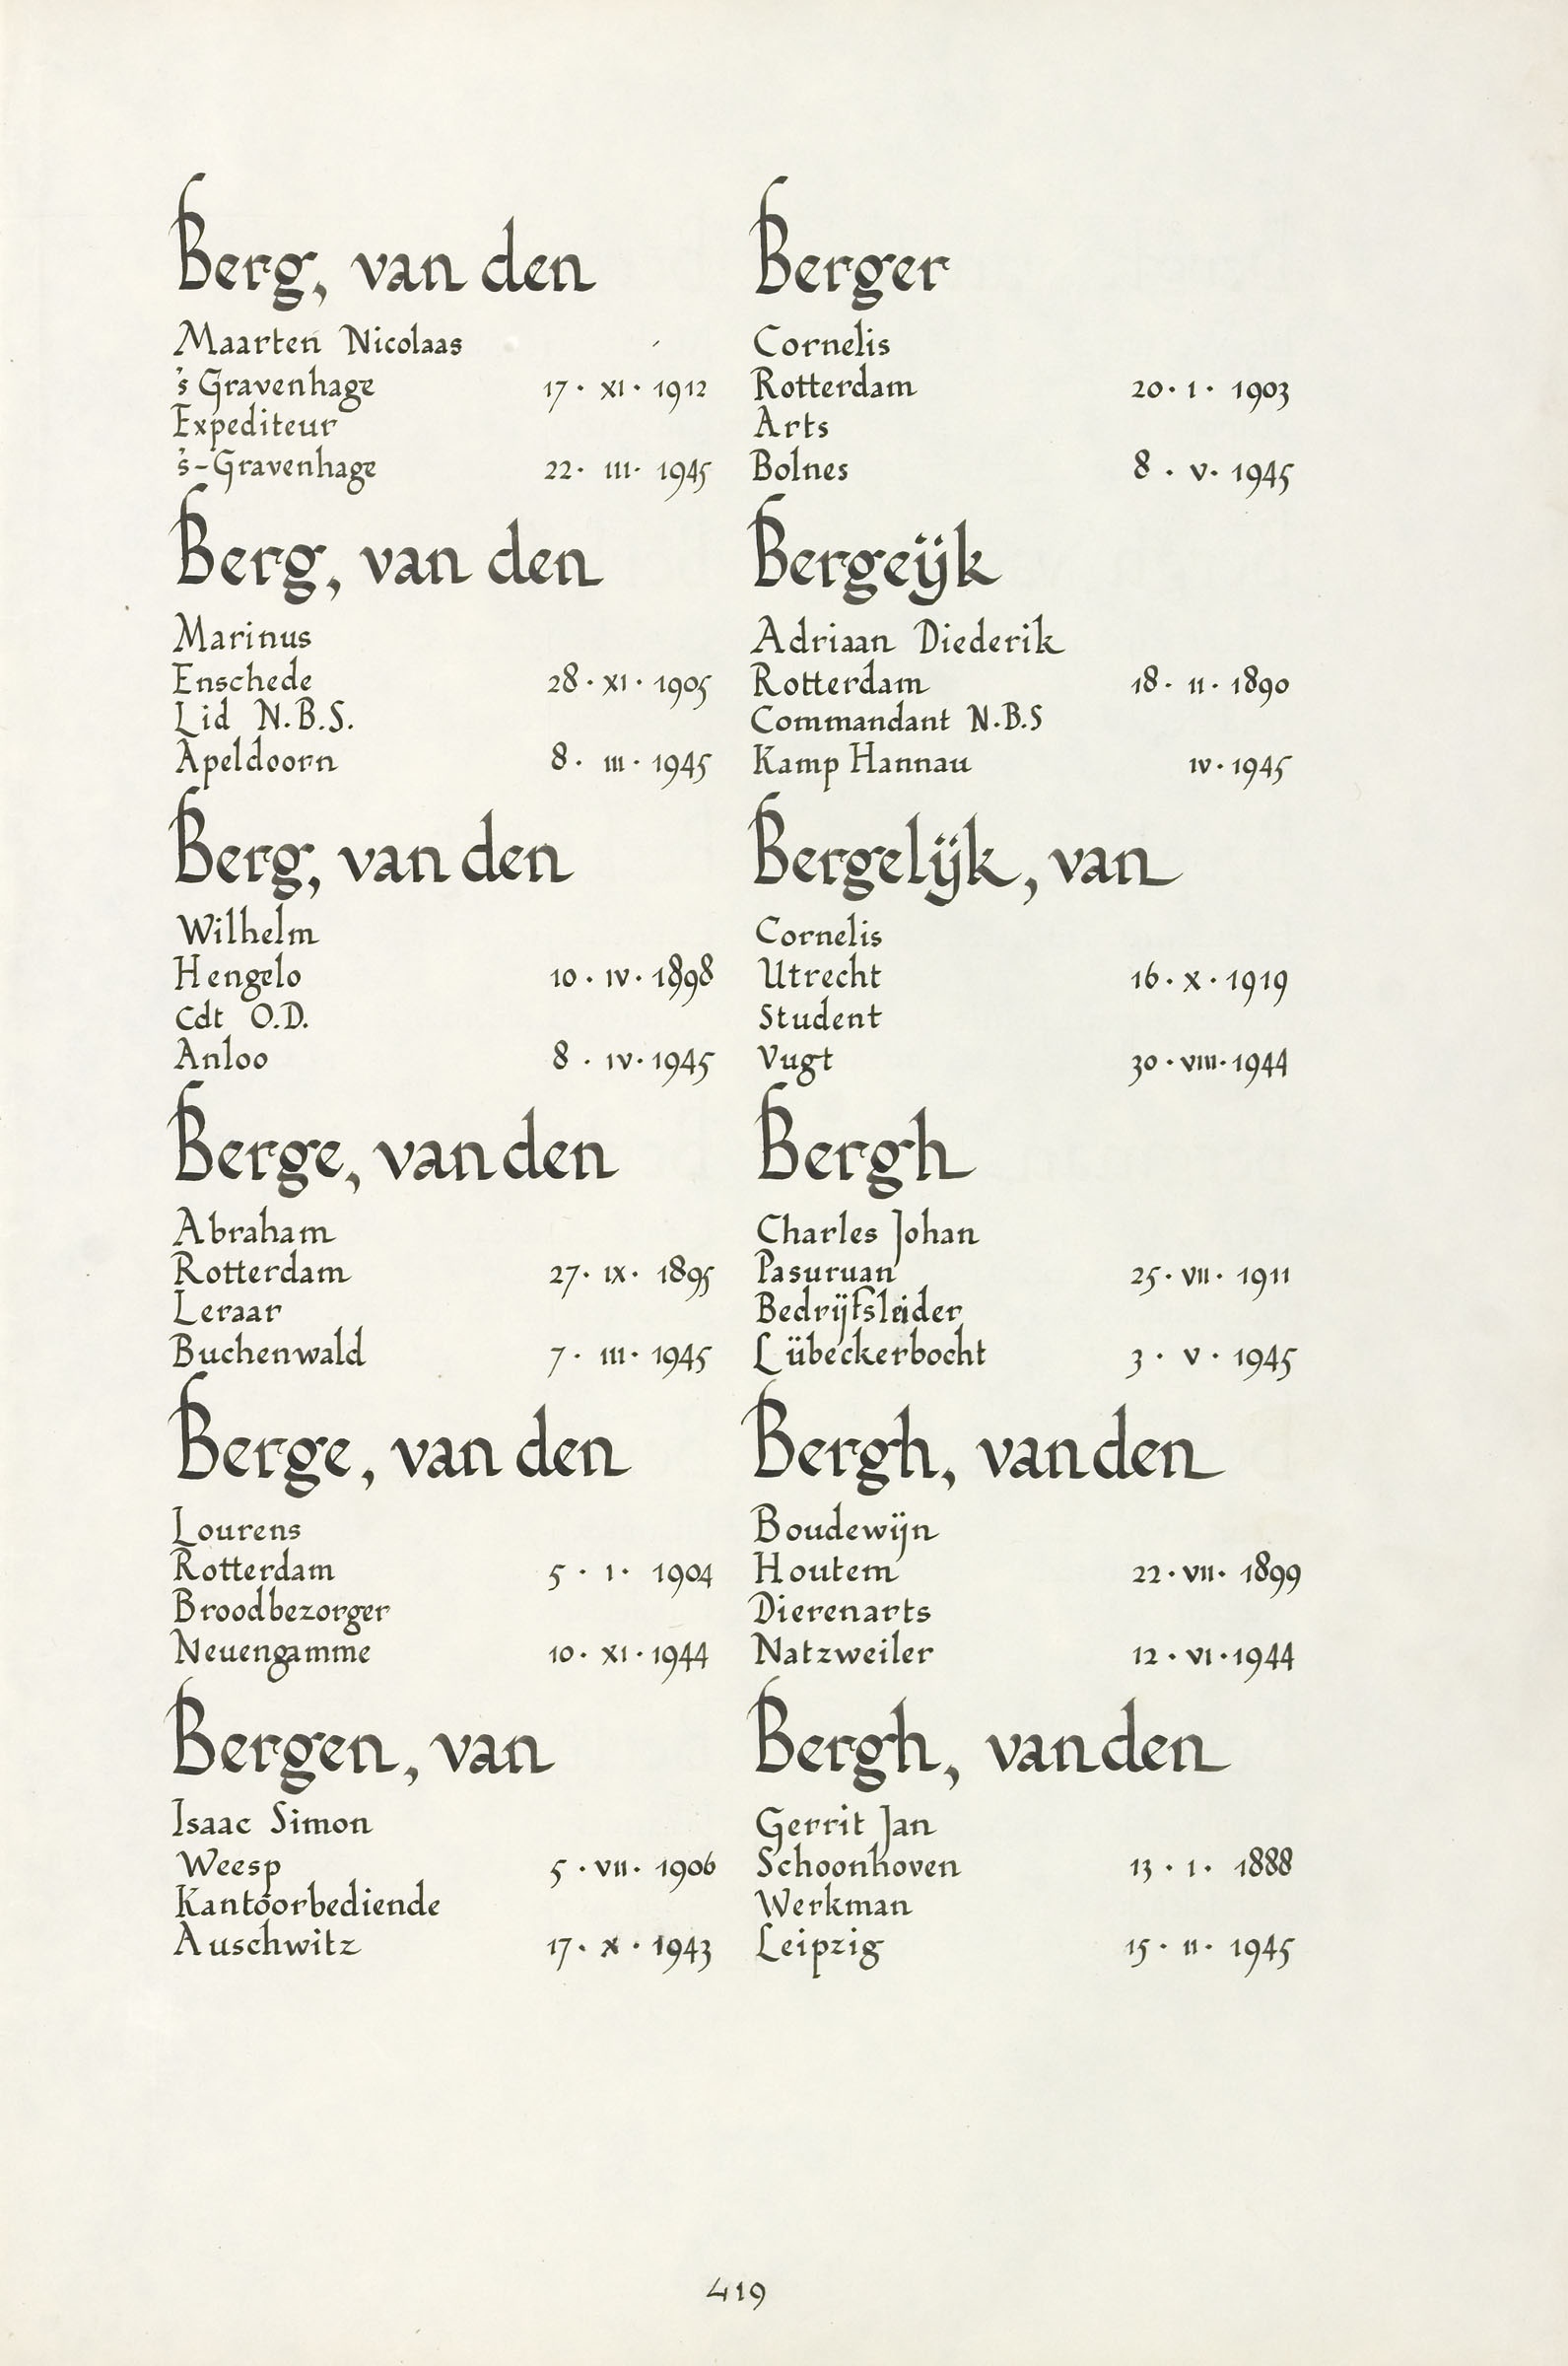 Berg, van den
Maarten Nicolaas
's Gravenhage 17 · XI · 1912
Expediteur
's-Gravenhage 22 · III · 1945
Berg, van den
Marinus
Enschede 28 · XI · 1905
Lid N.B.S.
Apeldoorn 8 · III · 1945
Berg, van den
Wilhelm
Hengelo 10 · IV · 1898
Cdt O.D.
Anloo 8 · IV · 1945
Berge, van den
Abraham
Rotterdam 27 · IX · 1895
Leraar
Buchenwald 7 · III · 1945
Berge, van den
Lourens
Rotterdam 5 · I · 1904
Broodbezorger
Neuengamme 10 · XI · 1944
Bergen, van
Isaac Simon
Weesp 5 · VII · 1906
Kantoorbediende
Auschwitz 17 · X · 1943
Berger
Cornelis
Rotterdam 20 · I · 1903
Arts
Bolnes 8 · V · 1945
Bergeÿk
Adriaan Diederik
Rotterdam 18 · II · 1890
Commandant N.B.S
Kamp Hannau IV · 1945
Bergelÿk, van
Cornelis
Utrecht 16 · X · 1919
Student
Vugt 30 · VIII · 1944
Bergh
Charles Johan
Pasuruan 25 · VII · 1911
Bedrÿfsleider
Lübeckerbocht 3 · V · 1945
Bergh, van den
Boudewÿn
Houtem 22 · VII · 1899
Dierenarts
Natzweiler 12 · VI · 1944
Bergh, van den
Gerrit Jan
Schoonhoven 13 · I · 1888
Werkman
Leipzig 15 · II · 1945
419